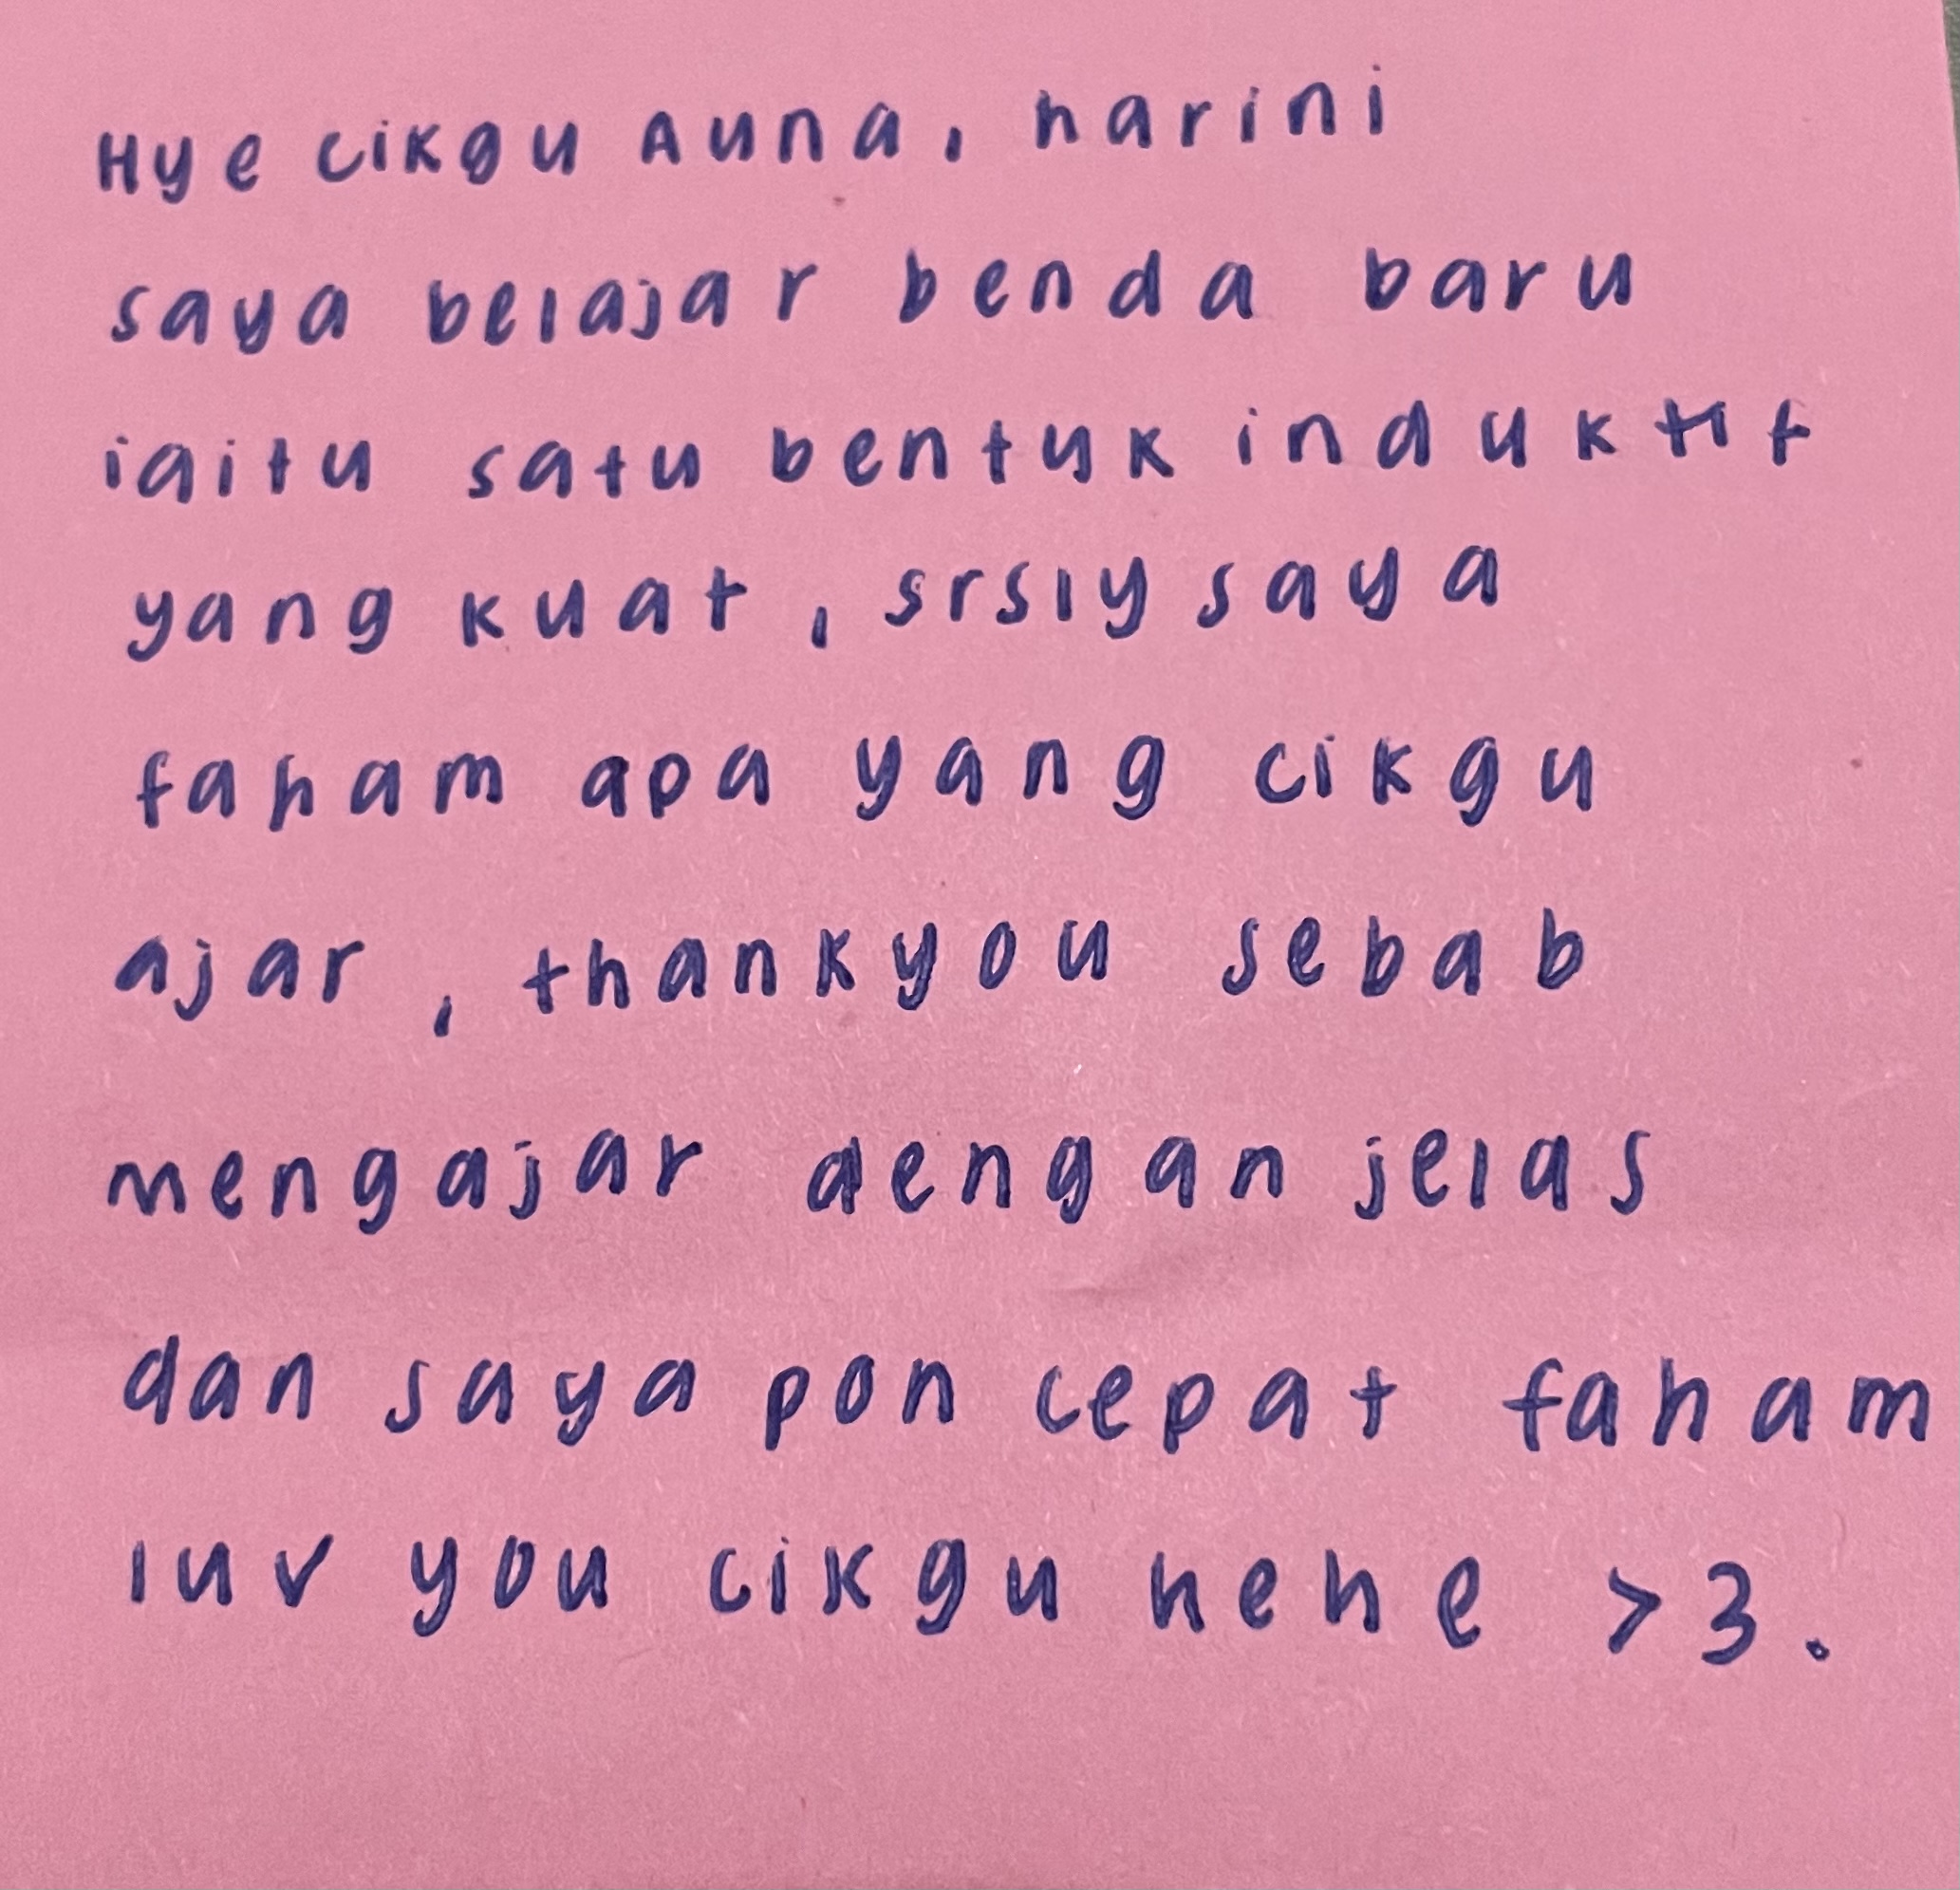 Hye cikgu Auna, harini
saya belajar benda baru
iaitu satu bentuk induktif
yang kuat, srsly saya
faham apa yang cikgu
ajar, thankyou sebab
mengajar dengan jelas
dan saya pon cepat faham
luv you cikgu hehe >3.